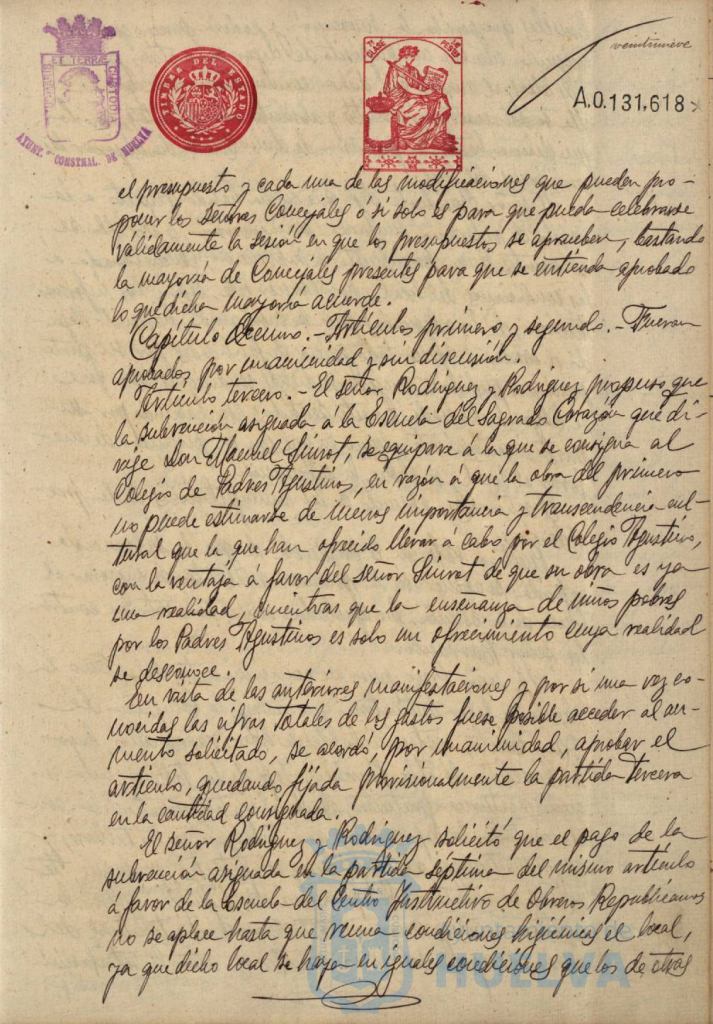 AYUNT. CONSTNAL. DE HUELVA
TIMBRE DEL ESTADO
7ª CLASE
PESETAS
veintinueve
A.0.131.618
el presupuesto y cada una de las modificaciones que pueden pro-
poner los señores Concejales ó si solo es para que pueda celebrarse
válidamente la sesión en que los presupuestos se aprueben, bastando
la mayoría de Concejales presentes para que se entienda aprobado
lo que dicha mayoría acuerde.
Capítulo Artículos primero y segundo.- Fueron
aprobados por unanimidad y sin discusión.
Artículo tercero.- El señor Rodriguez y Rodriguez propuso que
la subvención asignada á la Escuela del Sagrado Corazón que di-
rige Don Manuel Siurot, se equipare á la que se consigna al
Colegio de Padres Agustinos, en razón á que la obra del primero
no puede estimarse de menos importancia y transcendencia cul-
tural que la que han ofrecido llevar a cabo por el Colegio Agustino,
con la ventaja á favor del señor Siurot de que su obra es ya
una realidad, mientras que la enseñanza de niños pobres
por los Padres Agustinos es solo un ofrecimiento cuya realidad
se desconoce.
En vista de las anteriores manifestaciones y por si una vez co-
nocidas las cifras totales de los gastos fuese posible acceder al au-
mento solicitado, se acordó, por unanimidad, aprobar el
artículo, quedando fijada provisionalmente la partida tercera
en la cantidad consignada.
El señor Rodriguez y Rodriguez solicitó que el pago de la
subvención asignada en la partida séptima del mismo artículo
á favor de la Escuela del Centro Instructivo de Obreros Republicanos
no se aplace hasta que reuna condiciones higiénicas el local,
ya que dicho local se haya en iguales condiciones que los de otras
HUELVA